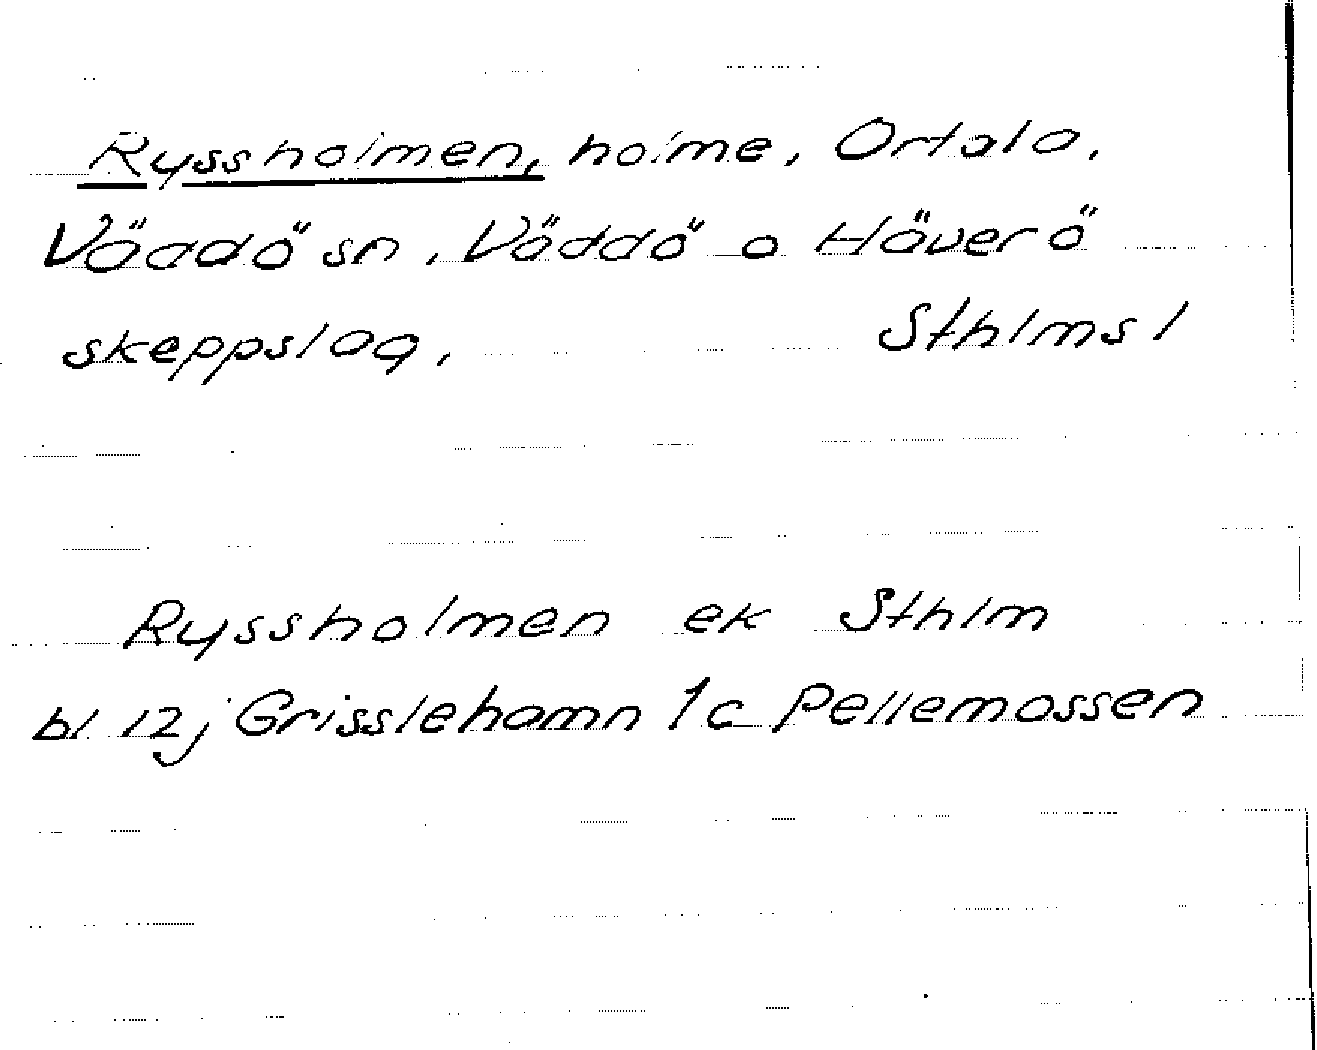 Ryssholmen, holme, Ortala,
Väddö sn, Väddö o Häverö
skeppslag, Sthlms l
Ryssholmen ek Sthlm
bl 12j Grisslehamn 1c Pellemossen